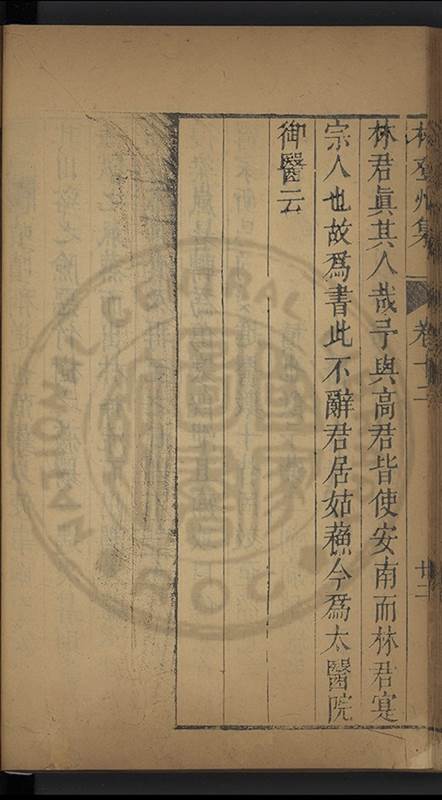 林登州集 卷十二 廿三
林君眞其人哉予與高君皆使安南而林君寔
宗人也故爲書此不辭君居姑蘓今爲太醫院
御醫云